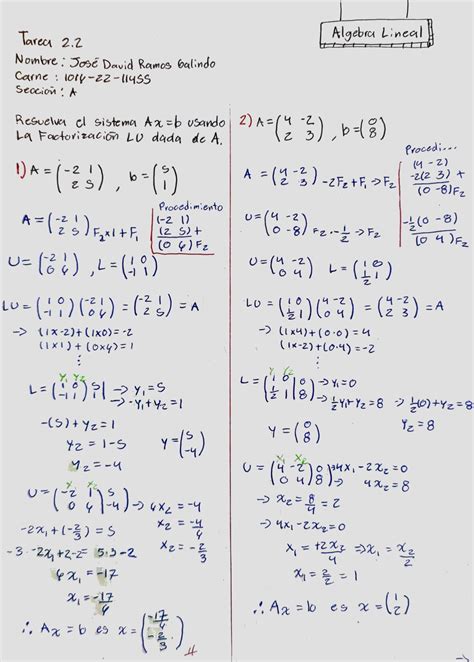 Algebra Lineal
Tarea 2.2
Nombre: José David Ramos Galindo
Carne: 1014-22-11455
Sección: A
Resuelva el sistema Ax=b usando
La Factorización LU dada de A.
1) A = (-2 1 / 2 5) , b = (5 / 1)
Procedimiento
A = (-2 1 / 2 5) F₂x1+F₁
(-2 1)
(2 5) +
(0 6) F₂
U = (-2 1 / 0 6) , L = (1 0 / -1 1)
LU = (1 0 / -1 1)(-2 1 / 0 6) = (-2 1 / 2 5) = A
-> (1x-2)+(1x0)=-2
(1x1)+(0x6)=1
⋮
y₁ y₂
L = (1 0 | 5 / -1 1 | 1) -> y₁=5
-> -y₁+y₂=1
-(5)+y₂=1
y₂=1-5
y₂=-4
y=(5 / -4)
x y
U = (-2 1 | 5 / 0 6 | -4) -> 6x₂=-4
x₂=-4/6
x₂=-2/3
-2x₁+(-2/3)=5
-3·-2x₁+2-2=5·3-2
6x₁=-17
x₁=-17/6
∴ Ax=b es x=(-17/6 / -2/3)
2) A = (4 -2 / 2 3) , b = (0 / 8)
Procedi...
A = (4 -2 / 2 3) -2F₂+F₁->F₂
(4 -2)
-2(2 3) +
(0 -8) F₂
U = (4 -2 / 0 -8) F₂·-1/2->F₂
-1/2(0 -8)
(0 4) F₂
U = (4 -2 / 0 4) L = (1 0 / 1/2 1)
LU = (1 0 / 1/2 1)(4 -2 / 0 4) = (4 -2 / 2 3) = A
-> (1x4)+(0·0)=4
(1x-2)+(0·4)=-2
⋮
y₁ y₂
L = (1 0 | 0 / 1/2 1 | 8) -> y₁=0
-> 1/2y₁+y₂=8 -> 1/2(0)+y₂=8
y₂=8
y=(0 / 8)
x₁ x₂
U = (4 -2 | 0 / 0 4 | 8) -> 4x₁-2x₂=0
4x₂=8
-> x₂=8/4=2
-> 4x₁-2x₂=0
x₁=+2x₂/4 => x₁=x₂/2
x₁=2/2=1
∴ Ax=b es x=(1 / 2)